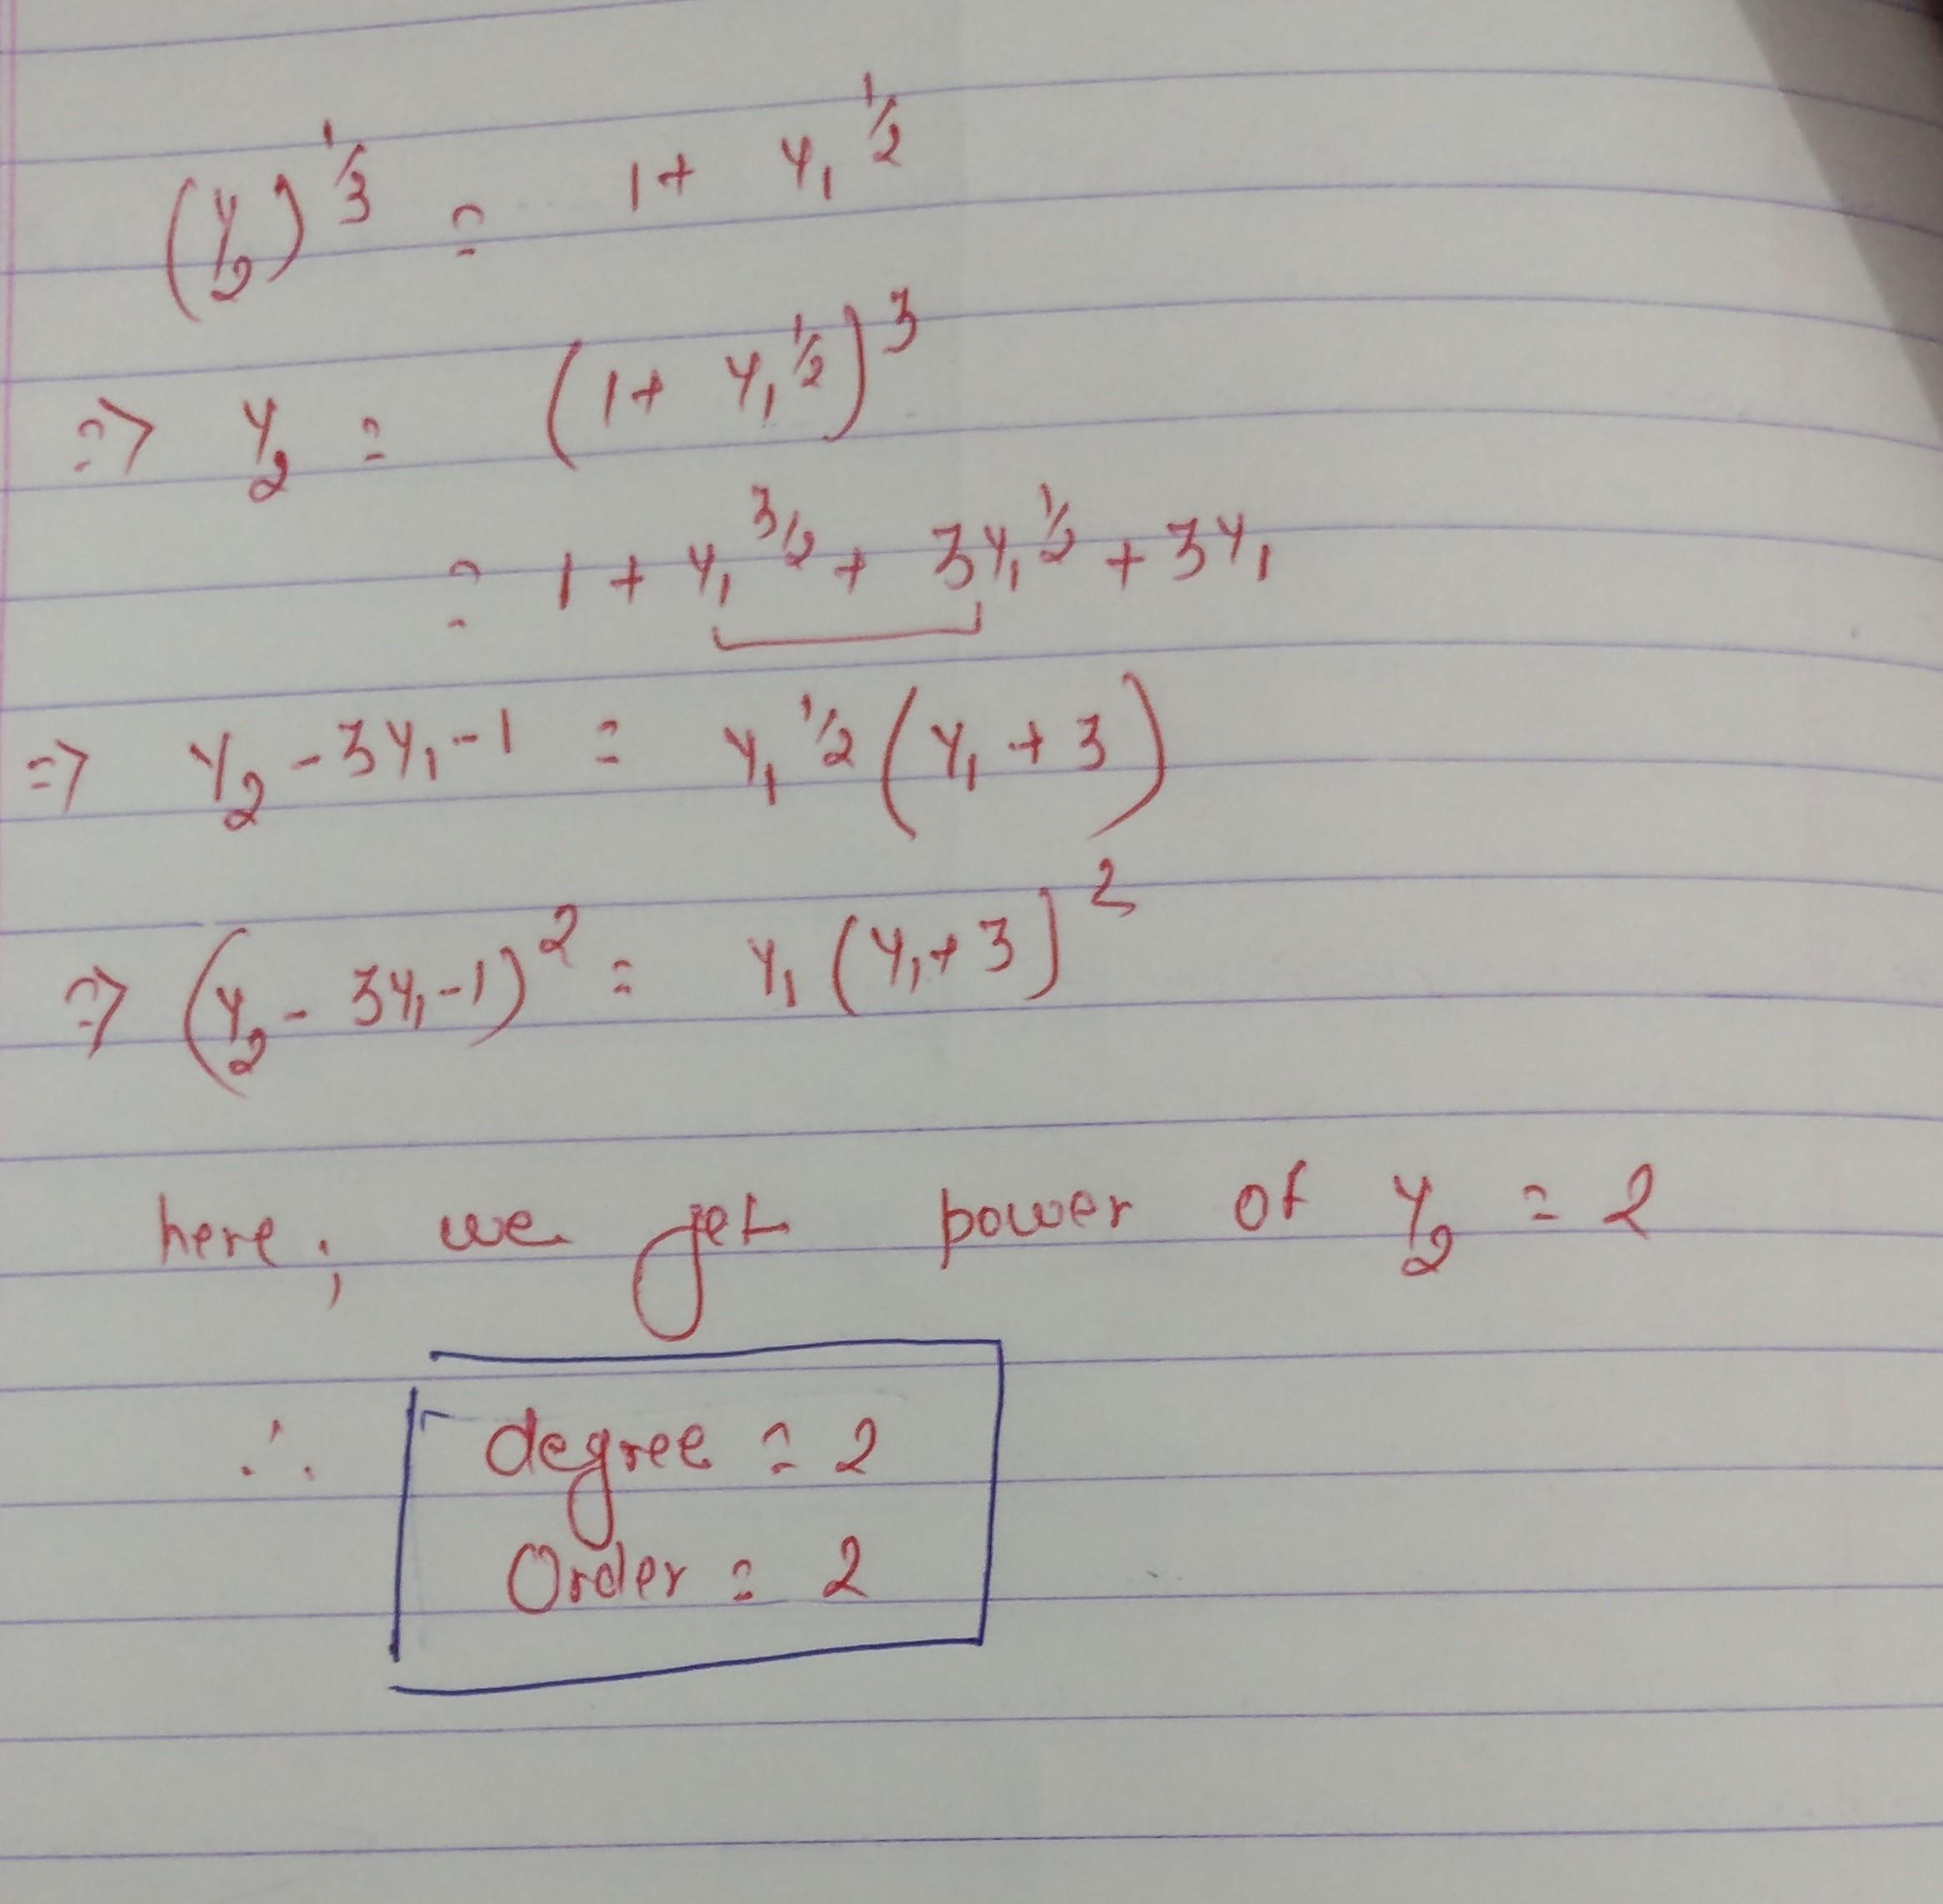 (y₂)^1/3 = 1 + y₁^1/2
⇒ y₂ = (1 + y₁^1/2)^3
= 1 + y₁^3/2 + 3y₁^1/2 + 3y₁
⇒ y₂ - 3y₁ - 1 = y₁^1/2 (y₁ + 3)
⇒ (y₂ - 3y₁ - 1)^2 = y₁ (y₁ + 3)^2
here, we get power of y₂ = 2
∴ degree = 2
Order = 2